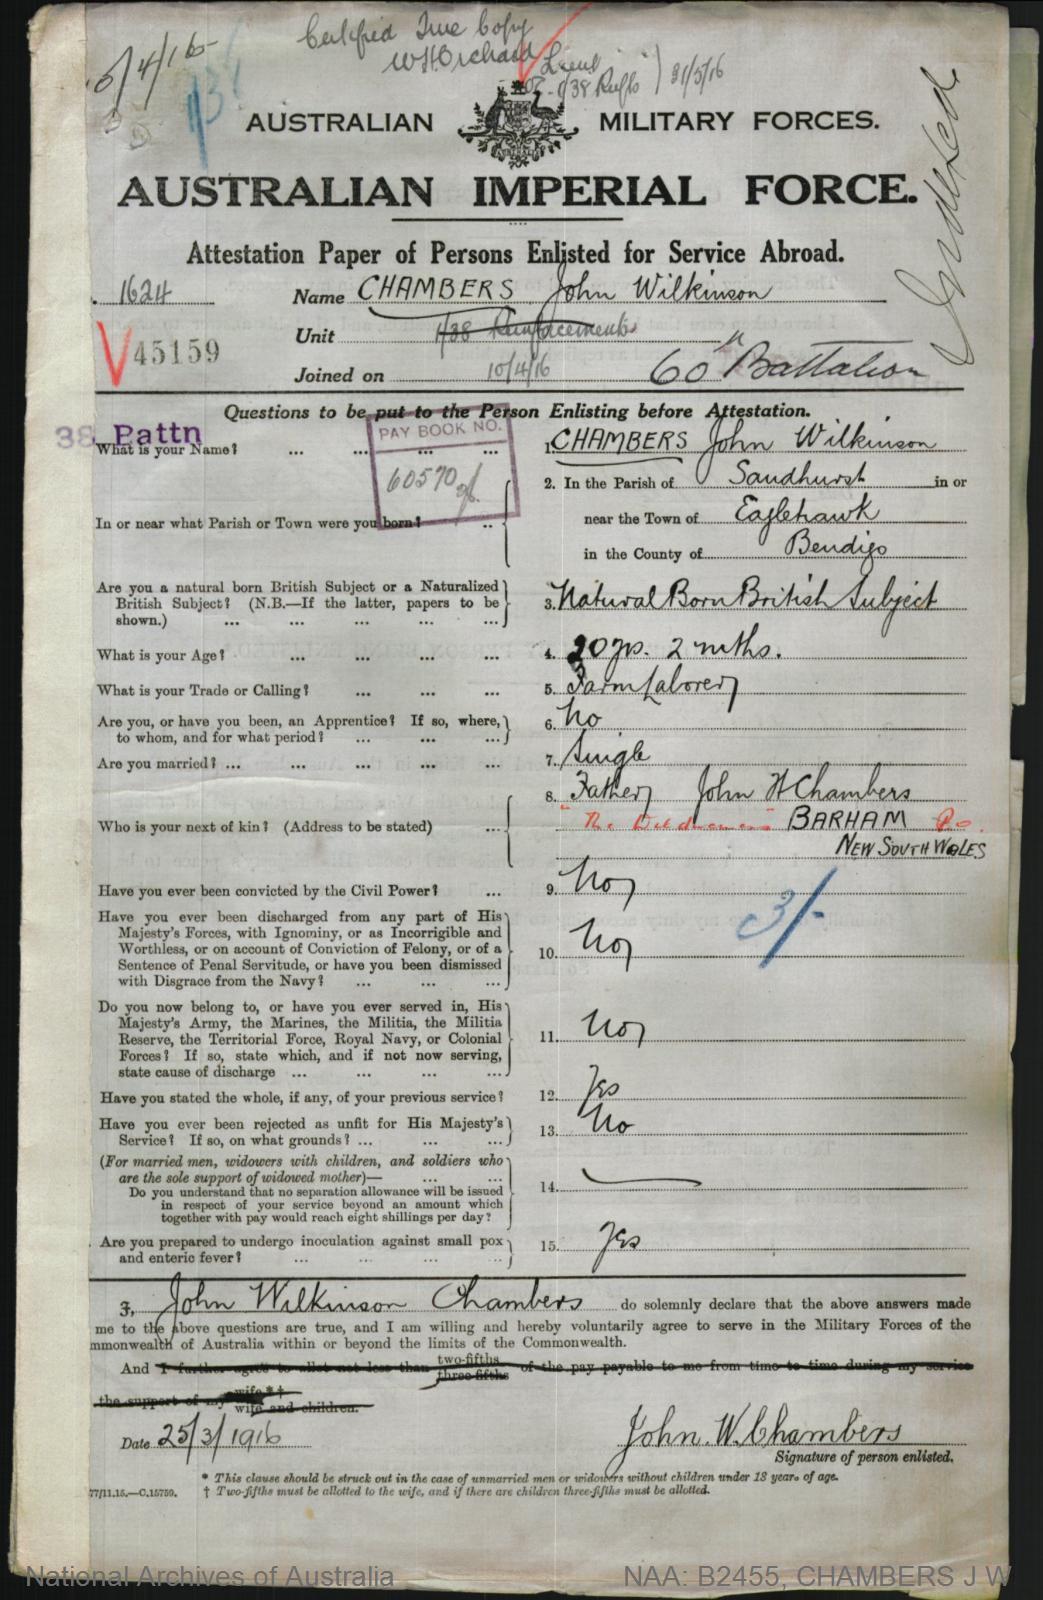 Certified True Copy
WH Orchard Lieut
1/38 Rnfts 31/5/16
5/4/16
Indexed
AUSTRALIAN MILITARY FORCES.
AUSTRALIAN IMPERIAL FORCE.
Attestation Paper of Persons Enlisted for Service Abroad.
1624 Name CHAMBERS John Wilkinson
45159 Unit 1/38 Reinforcements
Joined on 10/4/16 60th Battalion
Questions to be put to the Person Enlisting before Attestation.
38 Battn
PAY BOOK NO.
60570
What is your Name? ... ... ... ... 1. CHAMBERS John Wilkinson
In or near what Parish or Town were you born? .. 2. In the Parish of Sandhurst in or
near the Town of Eaglehawk
in the County of Bendigo
Are you a natural born British Subject or a Naturalized
British Subject? (N.B.—If the latter, papers to be
shown.) ... ... ... ... ... 3. Natural Born British Subject
What is your Age? ... ... ... ... 4. 20 yrs. 2 mths.
What is your Trade or Calling? ... ... ... 5. Farm Laborer
Are you, or have you been, an Apprentice? If so, where,
to whom, and for what period? ... ... ... 6. No
Are you married? ... ... ... ... ... 7. Single
8. Father John H Chambers
Who is your next of kin? (Address to be stated) ... "The BARHAM P.o.
NEW SOUTH WALES
Have you ever been convicted by the Civil Power? ... 9. No
3/-
Have you ever been discharged from any part of His
Majesty's Forces, with Ignominy, or as Incorrigible and
Worthless, or on account of Conviction of Felony, or of a
Sentence of Penal Servitude, or have you been dismissed
with Disgrace from the Navy? ... ... ... 10. No
Do you now belong to, or have you ever served in, His
Majesty's Army, the Marines, the Militia, the Militia
Reserve, the Territorial Force, Royal Navy, or Colonial
Forces? If so, state which, and if not now serving,
state cause of discharge ... ... ... ... 11. No
Have you stated the whole, if any, of your previous service? 12. Yes
Have you ever been rejected as unfit for His Majesty's
Service? If so, on what grounds? ... ... ... 13. No
(For married men, widowers with children, and soldiers who
are the sole support of widowed mother)— ... ...
Do you understand that no separation allowance will be issued
in respect of your service beyond an amount which
together with pay would reach eight shillings per day? 14.
Are you prepared to undergo inoculation against small pox
and enteric fever? ... ... ... ... 15. Yes
I, John Wilkinson Chambers do solemnly declare that the above answers made
me to the above questions are true, and I am willing and hereby voluntarily agree to serve in the Military Forces of the
mmonwealth of Australia within or beyond the limits of the Commonwealth.
And I further agree to allot not less than two-fifths three-fifths of the pay payable to me from time to time during my service
the support of my wife *† wife and children.
Date 25/3/1916 John. W. Chambers
Signature of person enlisted.
* This clause should be struck out in the case of unmarried men or widowers without children under 18 years of age.
77/11.15.—C.15759. † Two-fifths must be allotted to the wife, and if there are children three-fifths must be allotted.
National Archives of Australia NAA: B2455, CHAMBERS J W